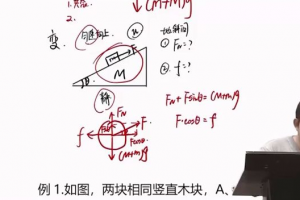 1.
2.
(M+m)g
变.
匀速向上
F
m
M
θ
① F_N=?
② f=?
静
F_N
f
F
Fcosθ
(M+m)g
F_N+Fsinθ=(M+m)g
F·cosθ=f
例 1.如图，两块相同竖直木块，A、